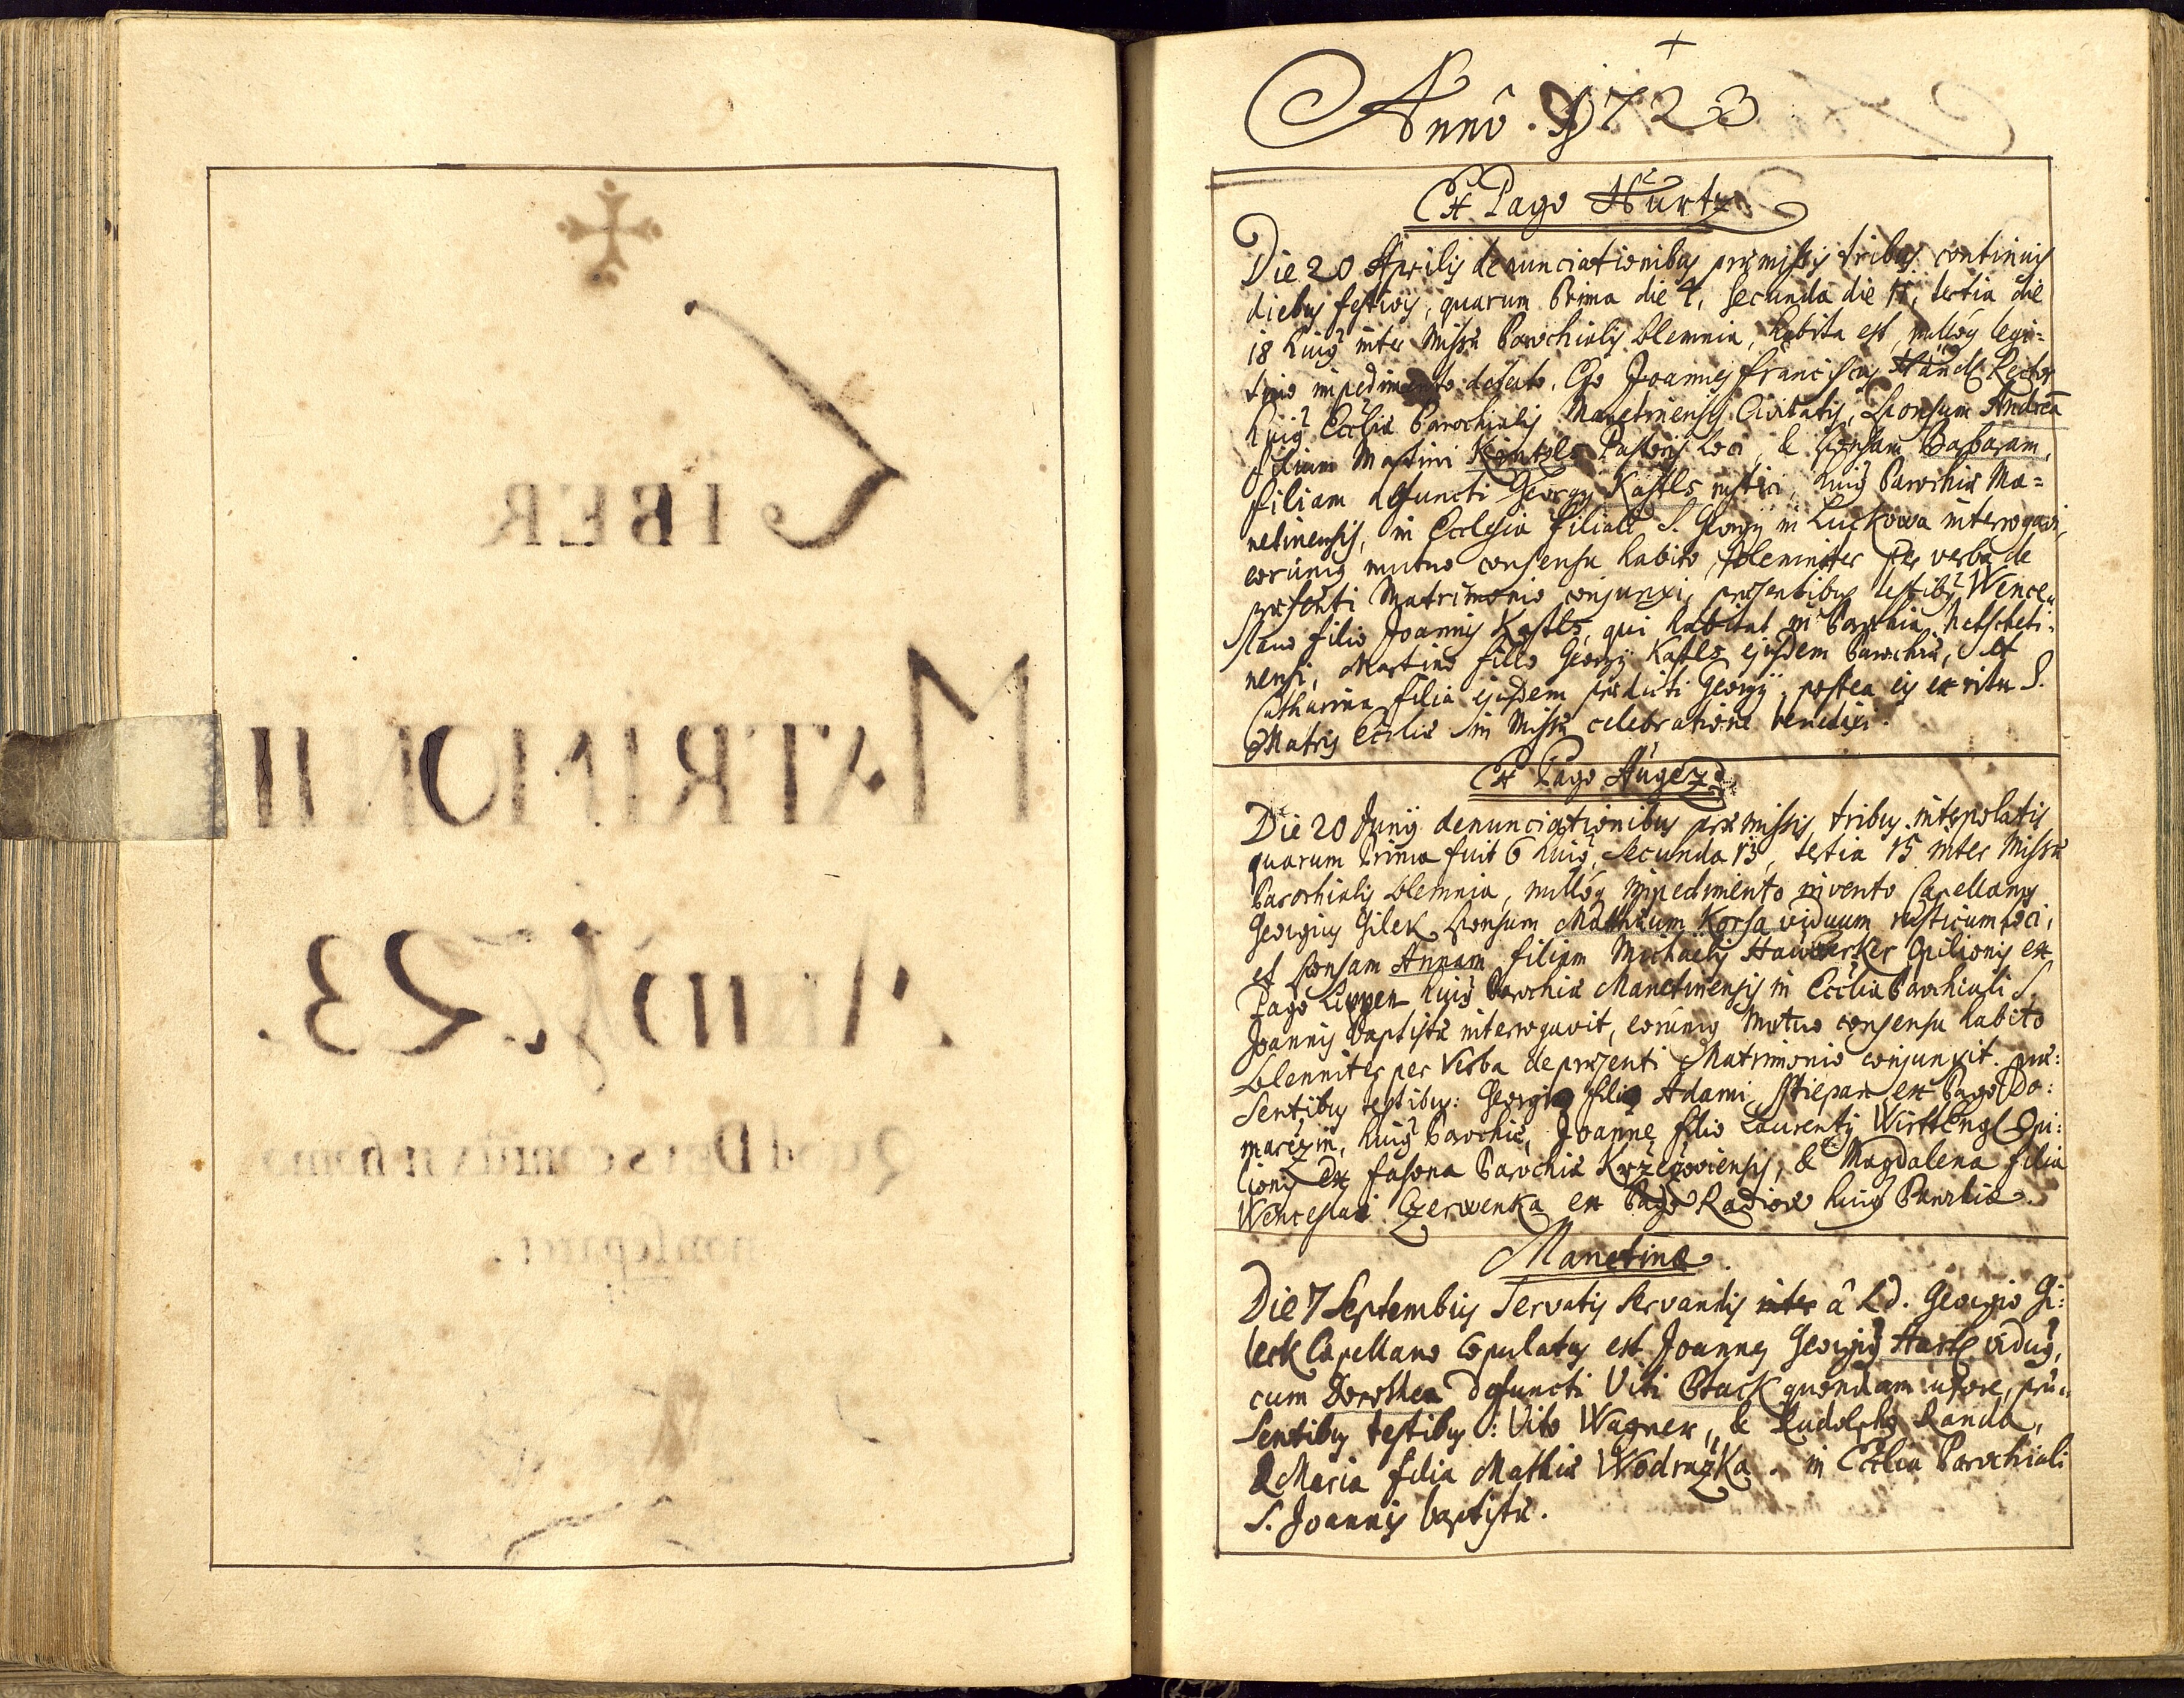 LIBER
MATRIMONII
Anno 1723.
Quod Deus conjuxit homo
non separet.
Anno. 1723
Ex Pago Hurtz
Die 20 Aprilis denunciationibus præmissis tribus continuis
diebus festivis, quarum Prima die 4, secunda die 11, tertia die
18 huius inter Missæ Parochialis solemnia, habita est, nulloq legi-
timo impedimento detecto, Ego Joannes Franciscus Händl Rector
huius Eccliæ Parochialis Manetinensis Civitatis, Sponsum Andreā
filium Martini Kuntzlo Pastoris loci, & sponsam Barbaram,
filiam defuncti Georgy Kastls rustici, huius Parochiæ Ma-
netinensis, in Ecclesia filiali S. Georgy in Luckowa interrogavi,
eorumq mutuo consensu habito, solemniter per verba de
præsenti Matrimonio conjunxi, præsentibus testibus Wence-
slao filio Joannis Kastls, qui habitat in Parochia Netscheti-
nensi, Martino filio Georgÿ Kastls ejusdem Parochiæ, et
Catharina filia ejusdem prædicti Georgÿ, postea eis ex ritu S.
Matris Eccliæ in Missæ celebratione benedixi.
Ex Pago Augezd
Die 20 Junÿ denunciationibus præmissis, tribus interpolatis
quarum Prima fuit 6 huius, Secunda 13, tertia 15 inter Missæ
Parochialis solemnia, nulloq impedimento invento Capellanus
Georgius Gilek sponsum Mathæum Korsa viduum rusticum loci,
et sponsam Annam filiam Michaelis Hawerker Opilionis ex
Pago Lippen huius Parochiæ Manetinensis in Ecclia Parochiali S.
Joannis Baptistæ interrogavit, eorumq Mutuo consensu habito
solenniter per Verba de præsenti Matrimonio conjunxit. præ-
sentibus testibus: Georgio filio Adami Stiepan ex Pago Do-
marczin, huius Parochiæ, Joanne filio Laurentÿ Wirttengl Opi-
lionis ex fasona Parochiæ Krzezoviensis, & Magdalena filia
Wenceslai Czerwenka ex Pago Radiow huius Parochiæ.
Manetinæ.
Die 7 Septembris servatis servandis inter â R.d. Georgio Gi-
leck Capellano Copulatus est Joannes Georgius Hartl viduus,
cum Dorothea defuncti Viti Brack quondam uxore, præ-
sentibus testibus: Vito Wagner, & Rudolpho Randa,
& Maria filia Mathiæ Wodrazka. in Ecclia Parochiali
S. Joannis baptistæ.